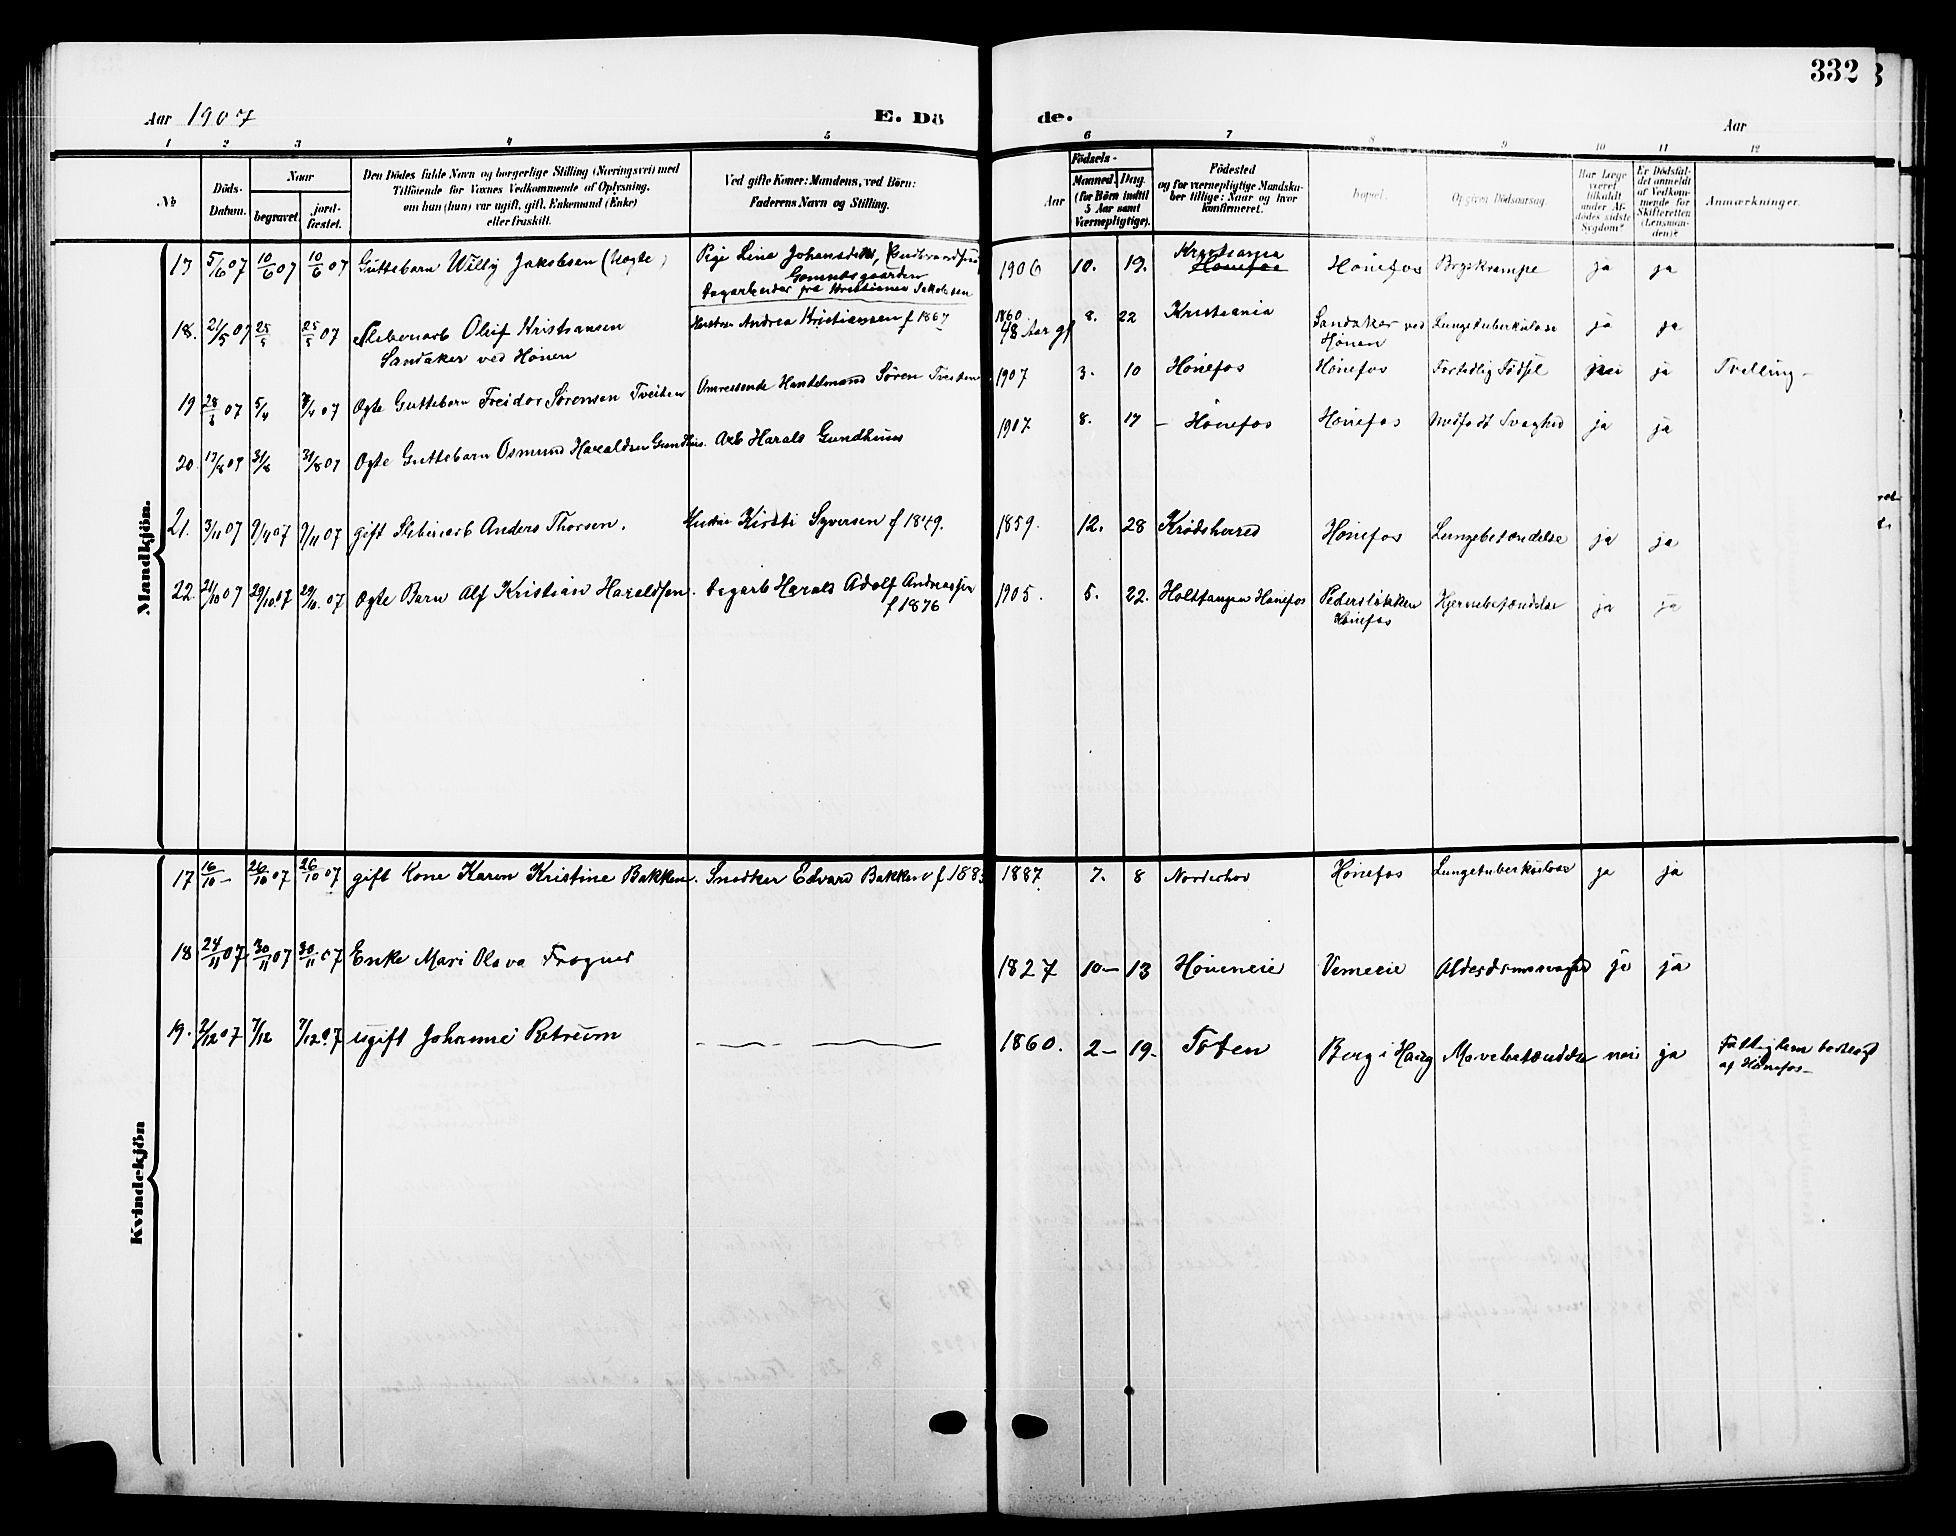 332
Aar 1907
E. Dö
de.
Aar
1 2 3 4 5 6 7 8 9 10 11 12
No
Döds-Datum.
Naar
begravet.
jord-fæstet.
Den Dödes fulde Navn og borgerlige Stilling (Næringsvei) med
Tilföiende for Voxnes Vedkommende af Oplysning,
om han (hun) var ugift, gift, Enkemand (Enke)
eller fraskilt.
Ved gifte Koner: Mandens, ved Börn:
Faderens Navn og Stilling.
Födsels-
Aar
Maaned. Dag.
(for Börn indtil
5 Aar samt
Værnepligtige).
Födested
og for værnepligtige Mandska-
ber tillige: Naar og hvor
konfirmeret.
Bopæl.
Opgiven Dödsaarsag.
Har Læge
været
tilkaldt
under Af-
dödes sidste
Sygdom?
Er Dödsfal-
det anmeldt
af Vedkom-
mende for
Skifteretten
(Lensman-
den)?
Anmærkninger.
Mandkjön.
17 5/6 07 10/6 07 10/6 07 Guttebarn Willy Jakobsen (Uægte) Pige Lina Johansdatter,
Dagarbeider fra Kristiania Jakobsen
1906 10. 19. Kristiania Hönefos Hönefos Brystkrampe ja ja
18. 21/5 07 25/5 25/5 07 Sliberiarb Oluf Kristiansen
Sandaker ved Hönen
Hustru Andrea Kristiansen f 1867
1860 48 Aar gl 8. 22 Kristiania Sandaker ved
Hönen
Lungetuberkulose ja ja
19 28/3 07 5/4 5/4 07 Ægte Guttebarn Freidor Sörensen Tveiten Omreisende Handelmand Sören Tveiten
1907 3. 10 Hönefos Hönefos Fortidlig Födsel nei ja Tvilling
20. 17/8 07 31/8 31/8 07 Ægte Guttebarn Osmund Haraldsen Gundhus. Arb Harald Gundhus
1907 8. 17 – Hönefos Hönefos Medfödt Svaghed ja ja
21. 3/11 07 9/11 07 9/11 07 gift Sliberiarb Anders Thorsen. Hustru Kirsti Syversen f 1849.
1859. 12. 28 Krödsherred Hönefos Lungebetændelse ja ja
22. 24/10 07 29/10 07 29/10 07 Ægte Barn Alf Kristian Haraldsen. Dagarb Harald Adolf Andreassen
f 1876
1905. 5. 22. Holttangen Hönefos Pederslökken
Hönefos
Hjernebetændelse ja ja
Kvindekjön
17 16/10 – 26/10 07 26/10 07 gift Kone Karen Kristine Bakken. Snedker Edvard Bakken f 188
1887. 7. 8 Norderhov Hönefos Lungetuberkulose ja ja
18 24/11 07. 30/11 07 30/11 07 Enke Mari Olava Frogner
1827 10 – 13 Höneneie Vemeeie Alderdomssvaghed ja ja
19. 2/12 07 7/12 7/12 07 ugift Johanne Retrum
1860. 2 – 19 – Toten Berg i Haug Mavebetændelse nei ja Fattiglem bortlagt
af Hönefos –